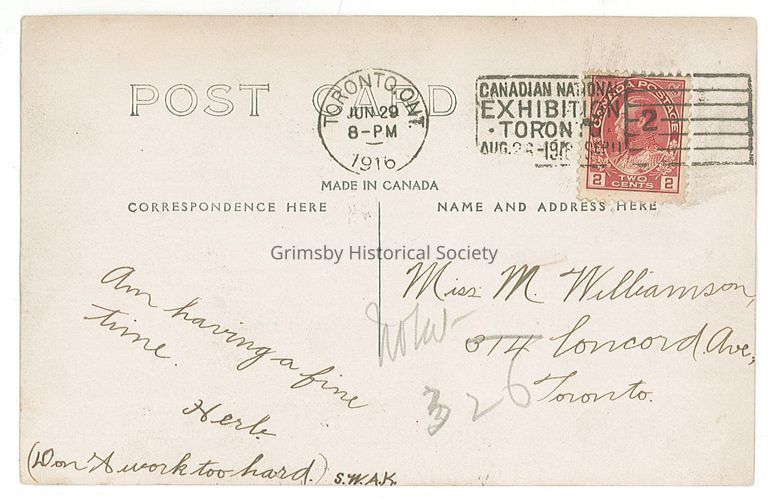 POST CARD
TORONTO, ONT.
JUN 29
8-PM
1916
CANADIAN NATIONAL
EXHIBITION
TORONTO
AUG. 26-1916 SEPT 11
CANADA POSTAGE
2
2 TWO CENTS 2
MADE IN CANADA
CORRESPONDENCE HERE
NAME AND ADDRESS HERE
Grimsby Historical Society
Am having a fine
time.
Herb.
(Don't work too hard.) S.W.A.K.
Miss M. Williamson,
314 Concord Ave.,
Toronto.
now
326